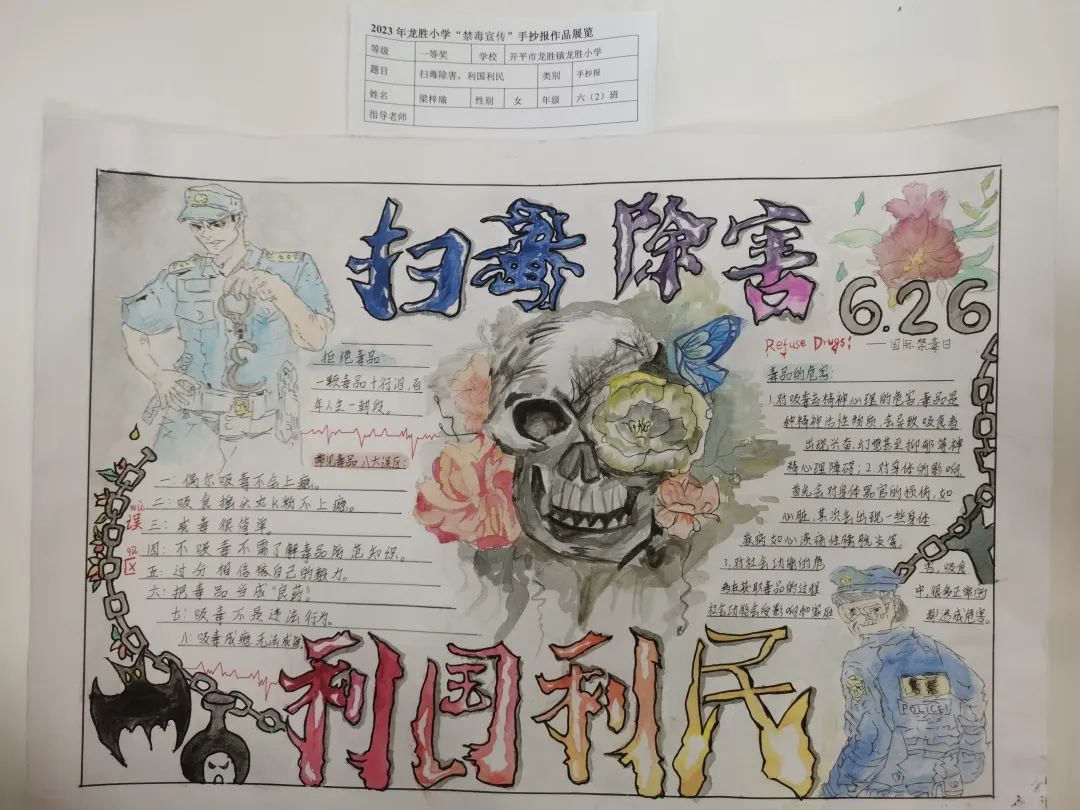 2023年龙胜小学“禁毒宣传”手抄报作品展览
等级 一等奖 学校 开平市龙胜镇龙胜小学
题目 扫毒除害，利国利民 类别 手抄报
姓名 梁梓瑜 性别 女 年级 六（2）班
指导老师
扫毒除害
6.26
Refuse Drugs!
——国际禁毒日
拒绝毒品：
一颗毒品十行泪，百
年人生一朝段。
常见毒品八大误区：
wù
误
qū
区
一：偶尔吸毒不会上瘾。
二：吸食摇头丸K粉不上瘾。
三：戒毒很简单。
四：不吸毒不需了解毒品防范知识。
五：过分相信被自己的毅力。
六：把毒品当成“良药”！
七：吸毒不是违法行为。
八：吸毒成瘾无法戒除
毒品的危害：
1.对吸毒者精神心理的危害，毒品是
种精神活性物质，会导致吸食者
出现兴奋、幻觉甚至抑郁等神
精心理障碍；2.对身体的影响，
首先会对身体器官的损伤，如
心脏，其次会出现一些身体
疾病如心源病性猝脱灾害
3.对社会功能的危害，吸食
者在获取毒品的过程中，很多正常的
社会功能会受影响和家庭都造成危害。
警察
POLICE
利国利民